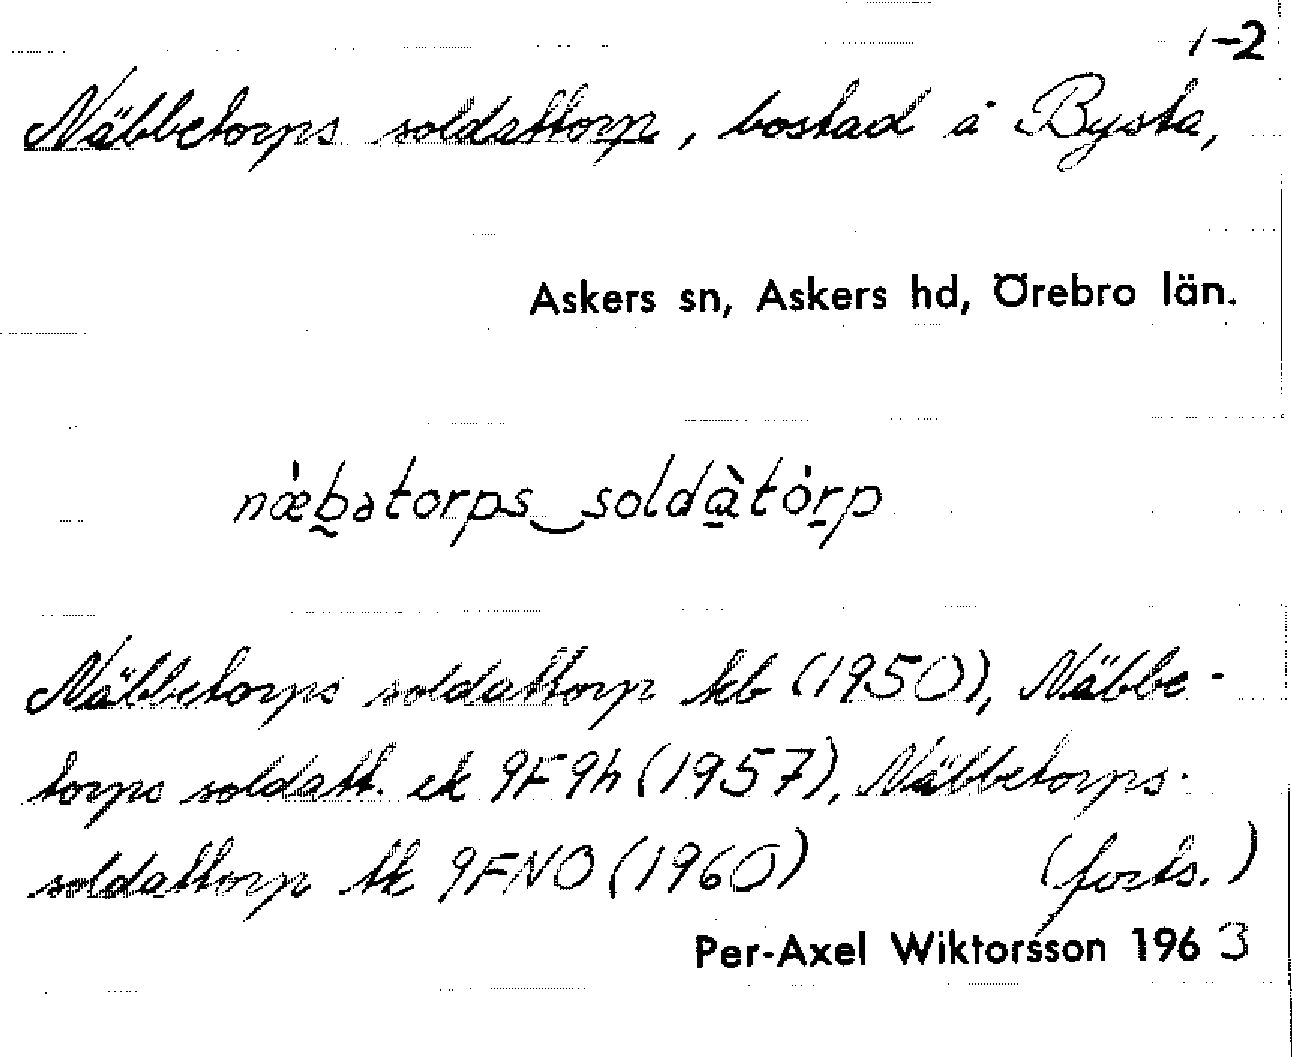 1-2
Näbbetorps soldattorp, bostad å Bysta,
Askers sn, Askers hd, Örebro län.
næ̀b̰ətorps‿soldà̱tóṟp
Näbbetorps soldattorp tkb (1950), Näbbe-
torps soldatt. ek 9F9h (1957), Näbbetorps
soldattorp tk 9FNO (1960) (forts.)
Per-Axel Wiktorsson 1963